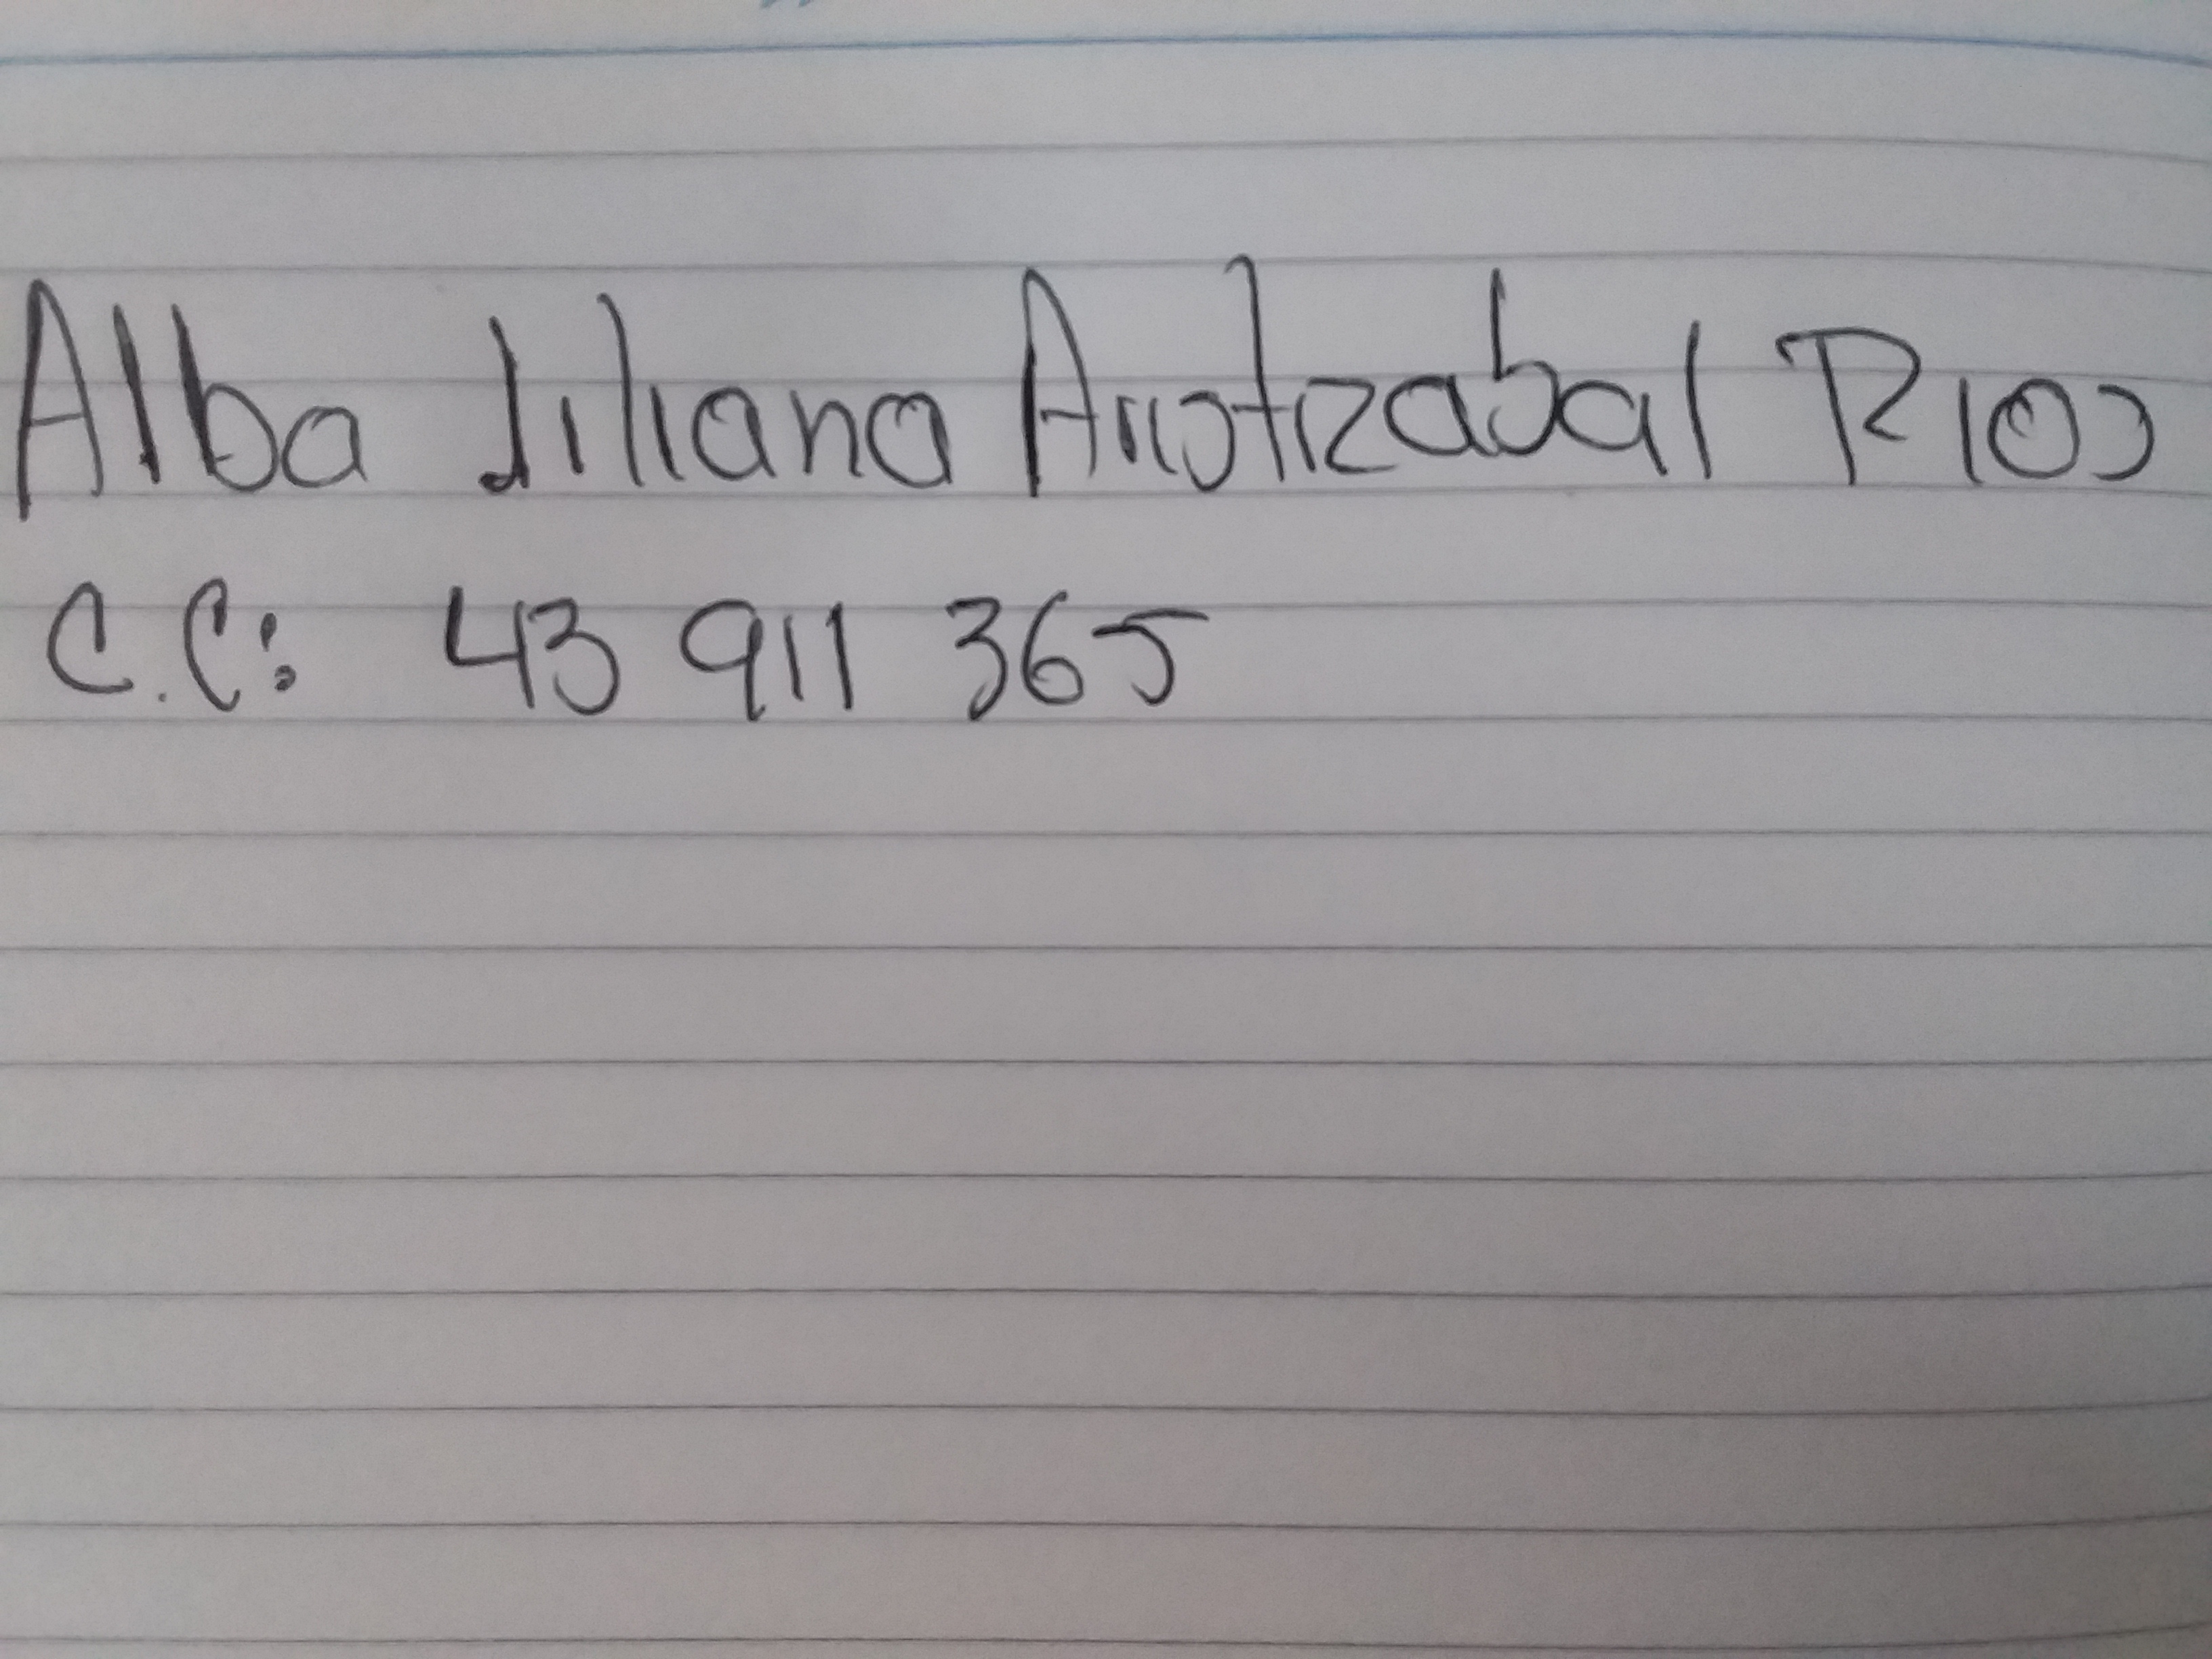 Alba Liliana Aristizabal Rios
C.C: 43 911 365